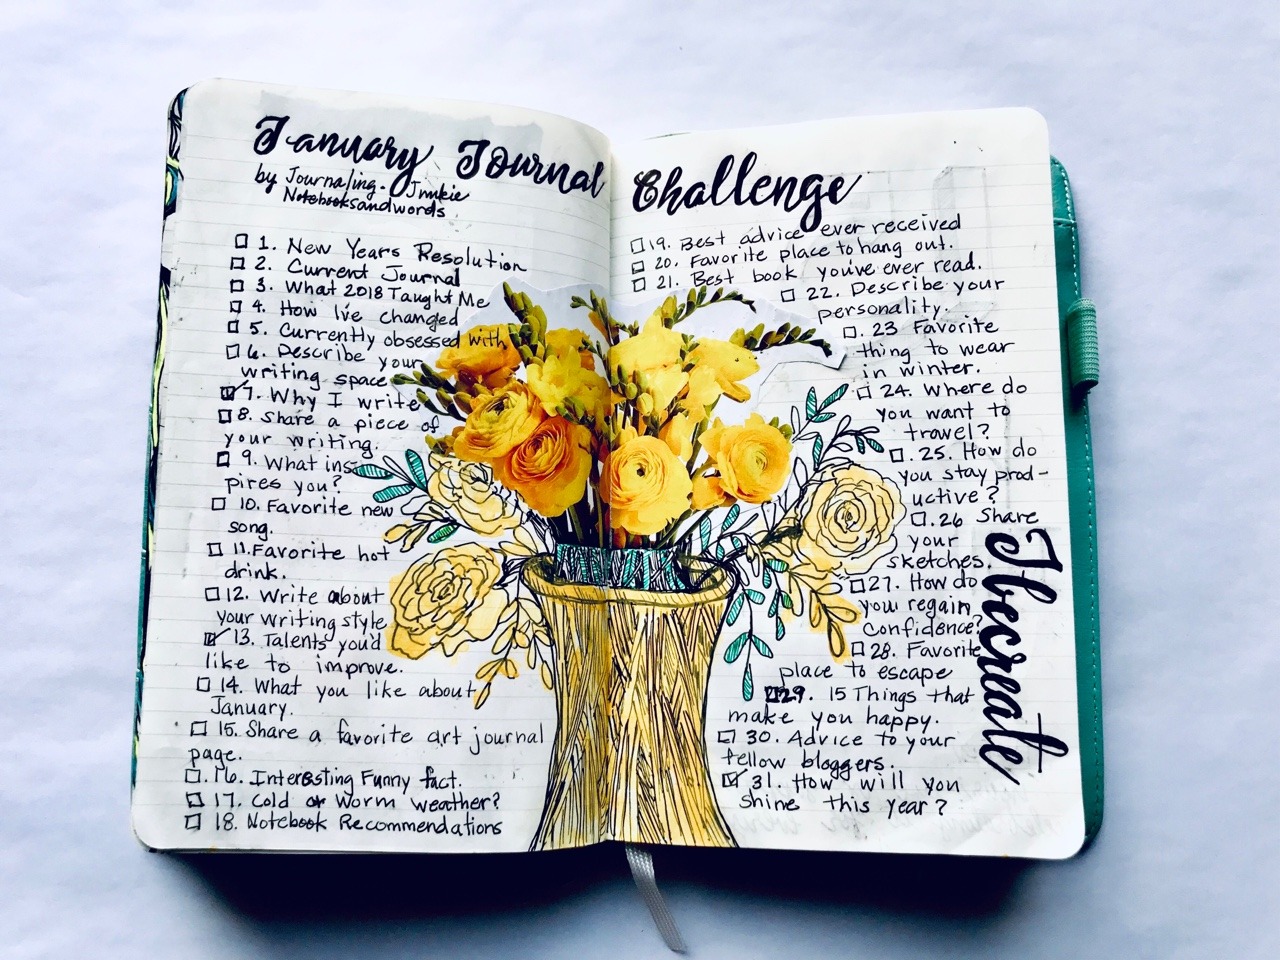 January Journal Challenge
by Journaling. Junkie
Notebooksandwords
1. New Years Resolution
2. Current Journal
3. What 2018 Taught Me
4. How I've changed
5. Currently obsessed with
6. Describe your
writing space
7. Why I write
8. Share a piece of
your writing.
9. What ins
pires you?
10. Favorite new
song.
11. Favorite hot
drink.
12. Write about
your writing style
13. Talents you'd
like to improve.
14. What you like about
January.
15. Share a favorite art journal
page.
16. Interesting Funny fact.
17. Cold or Worm weather?
18. Notebook Recommendations
19. Best advice ever received
20. Favorite place to hang out.
21. Best book you've ever read.
22. Describe your
personality.
23 Favorite
thing to wear
in winter.
24. Where do
you want to
travel?
25. How do
you stay prod-
uctive?
26 Share
your
sketches.
27. How do
you regain
confidence?
28. Favorite
place to escape
29. 15 Things that
make you happy.
30. Advice to your
fellow bloggers.
31. How will you
shine this year?